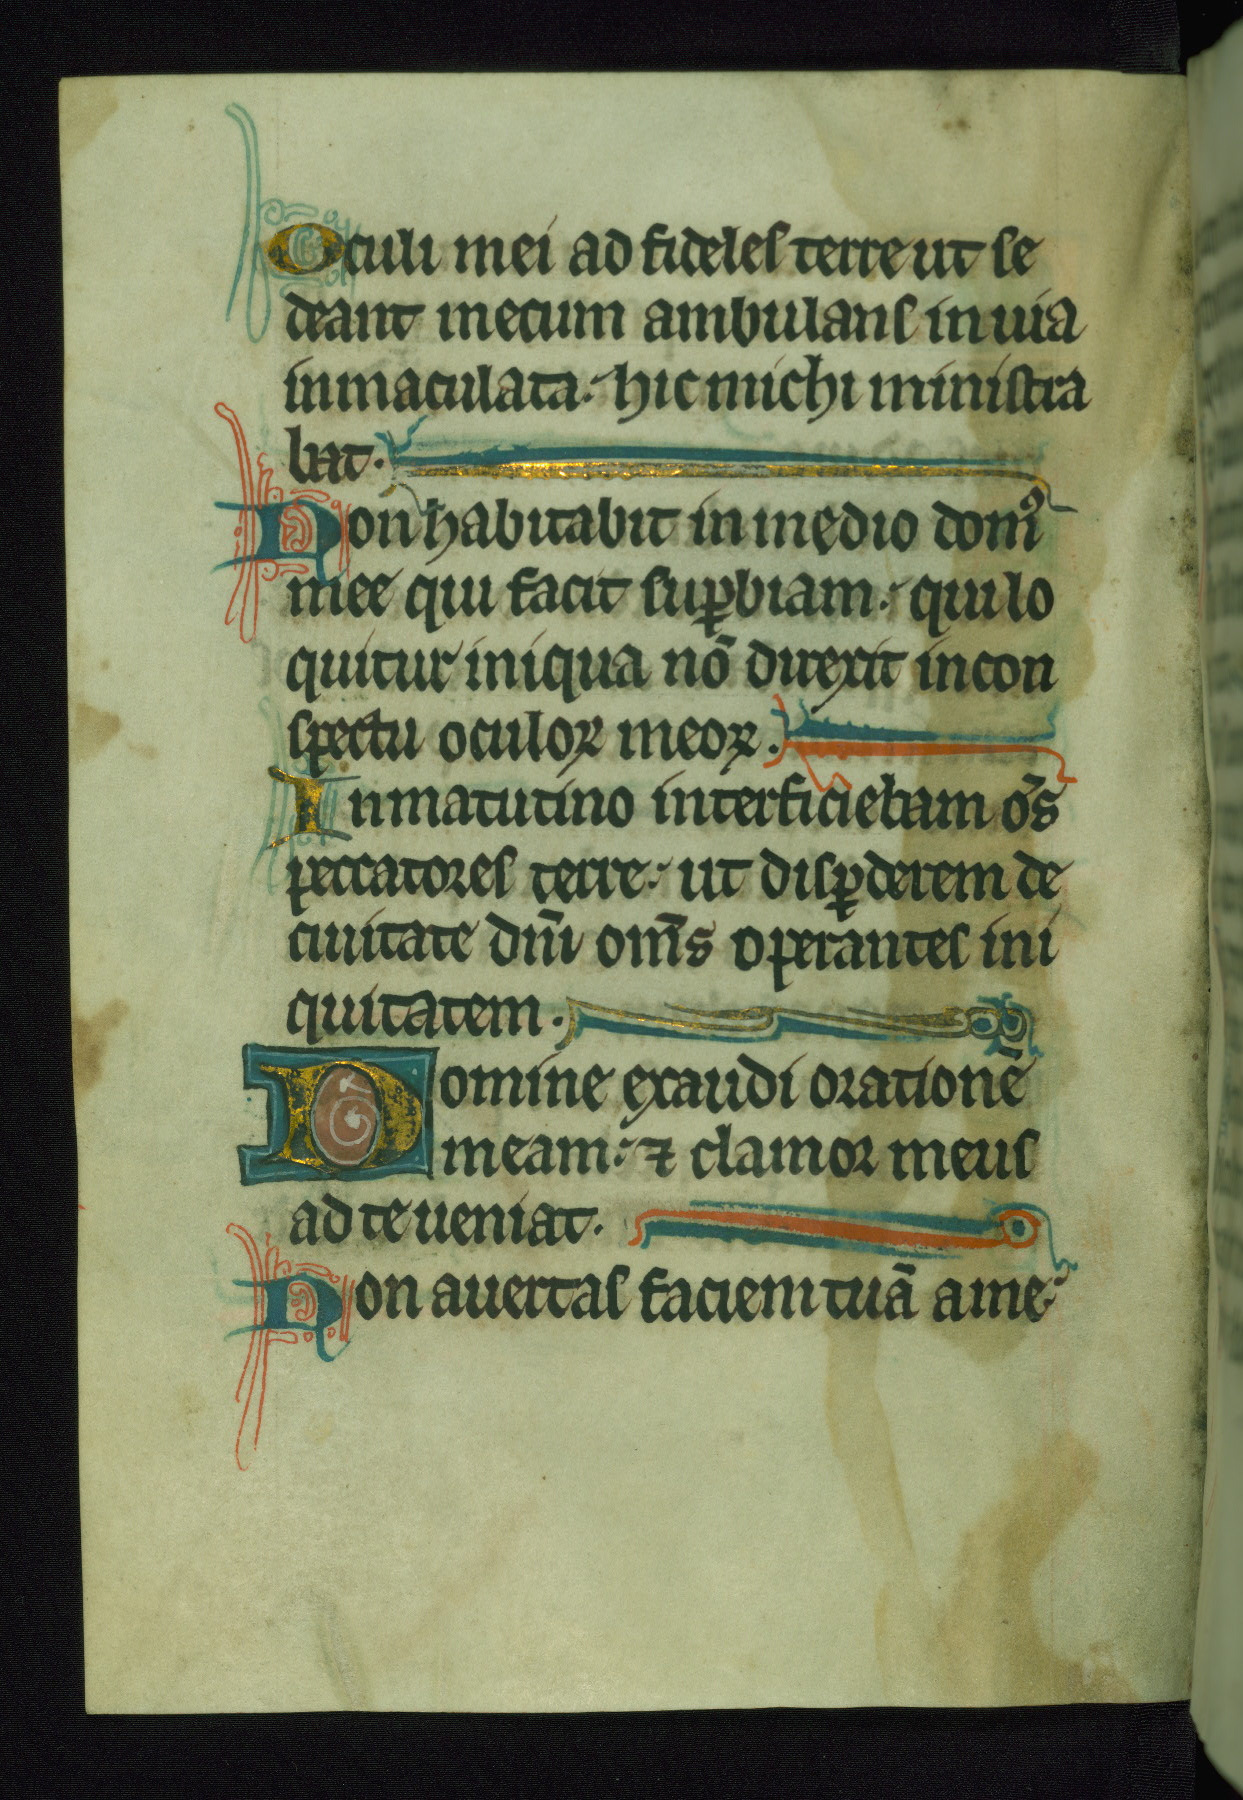 Oculi mei ad fideles terre ut se
deant mecum ambulans in uia
inmaculata. hic michi ministra
bat.
Non habitabit in medio domꝰ
mee qui facit suꝑbiam. qui lo
quitur iniqua nō direxit in con
spectu oculoꝝ meoꝝ.
In matutino interficiebam oīs
peccatores terre. ut disꝑderem de
ciuitate dn̄i om̄s operantes ini
quitatem.
Domine exaudi orationē
meam. ⁊ clamor meus
ad te ueniat.
Non auertas faciem tuā a me